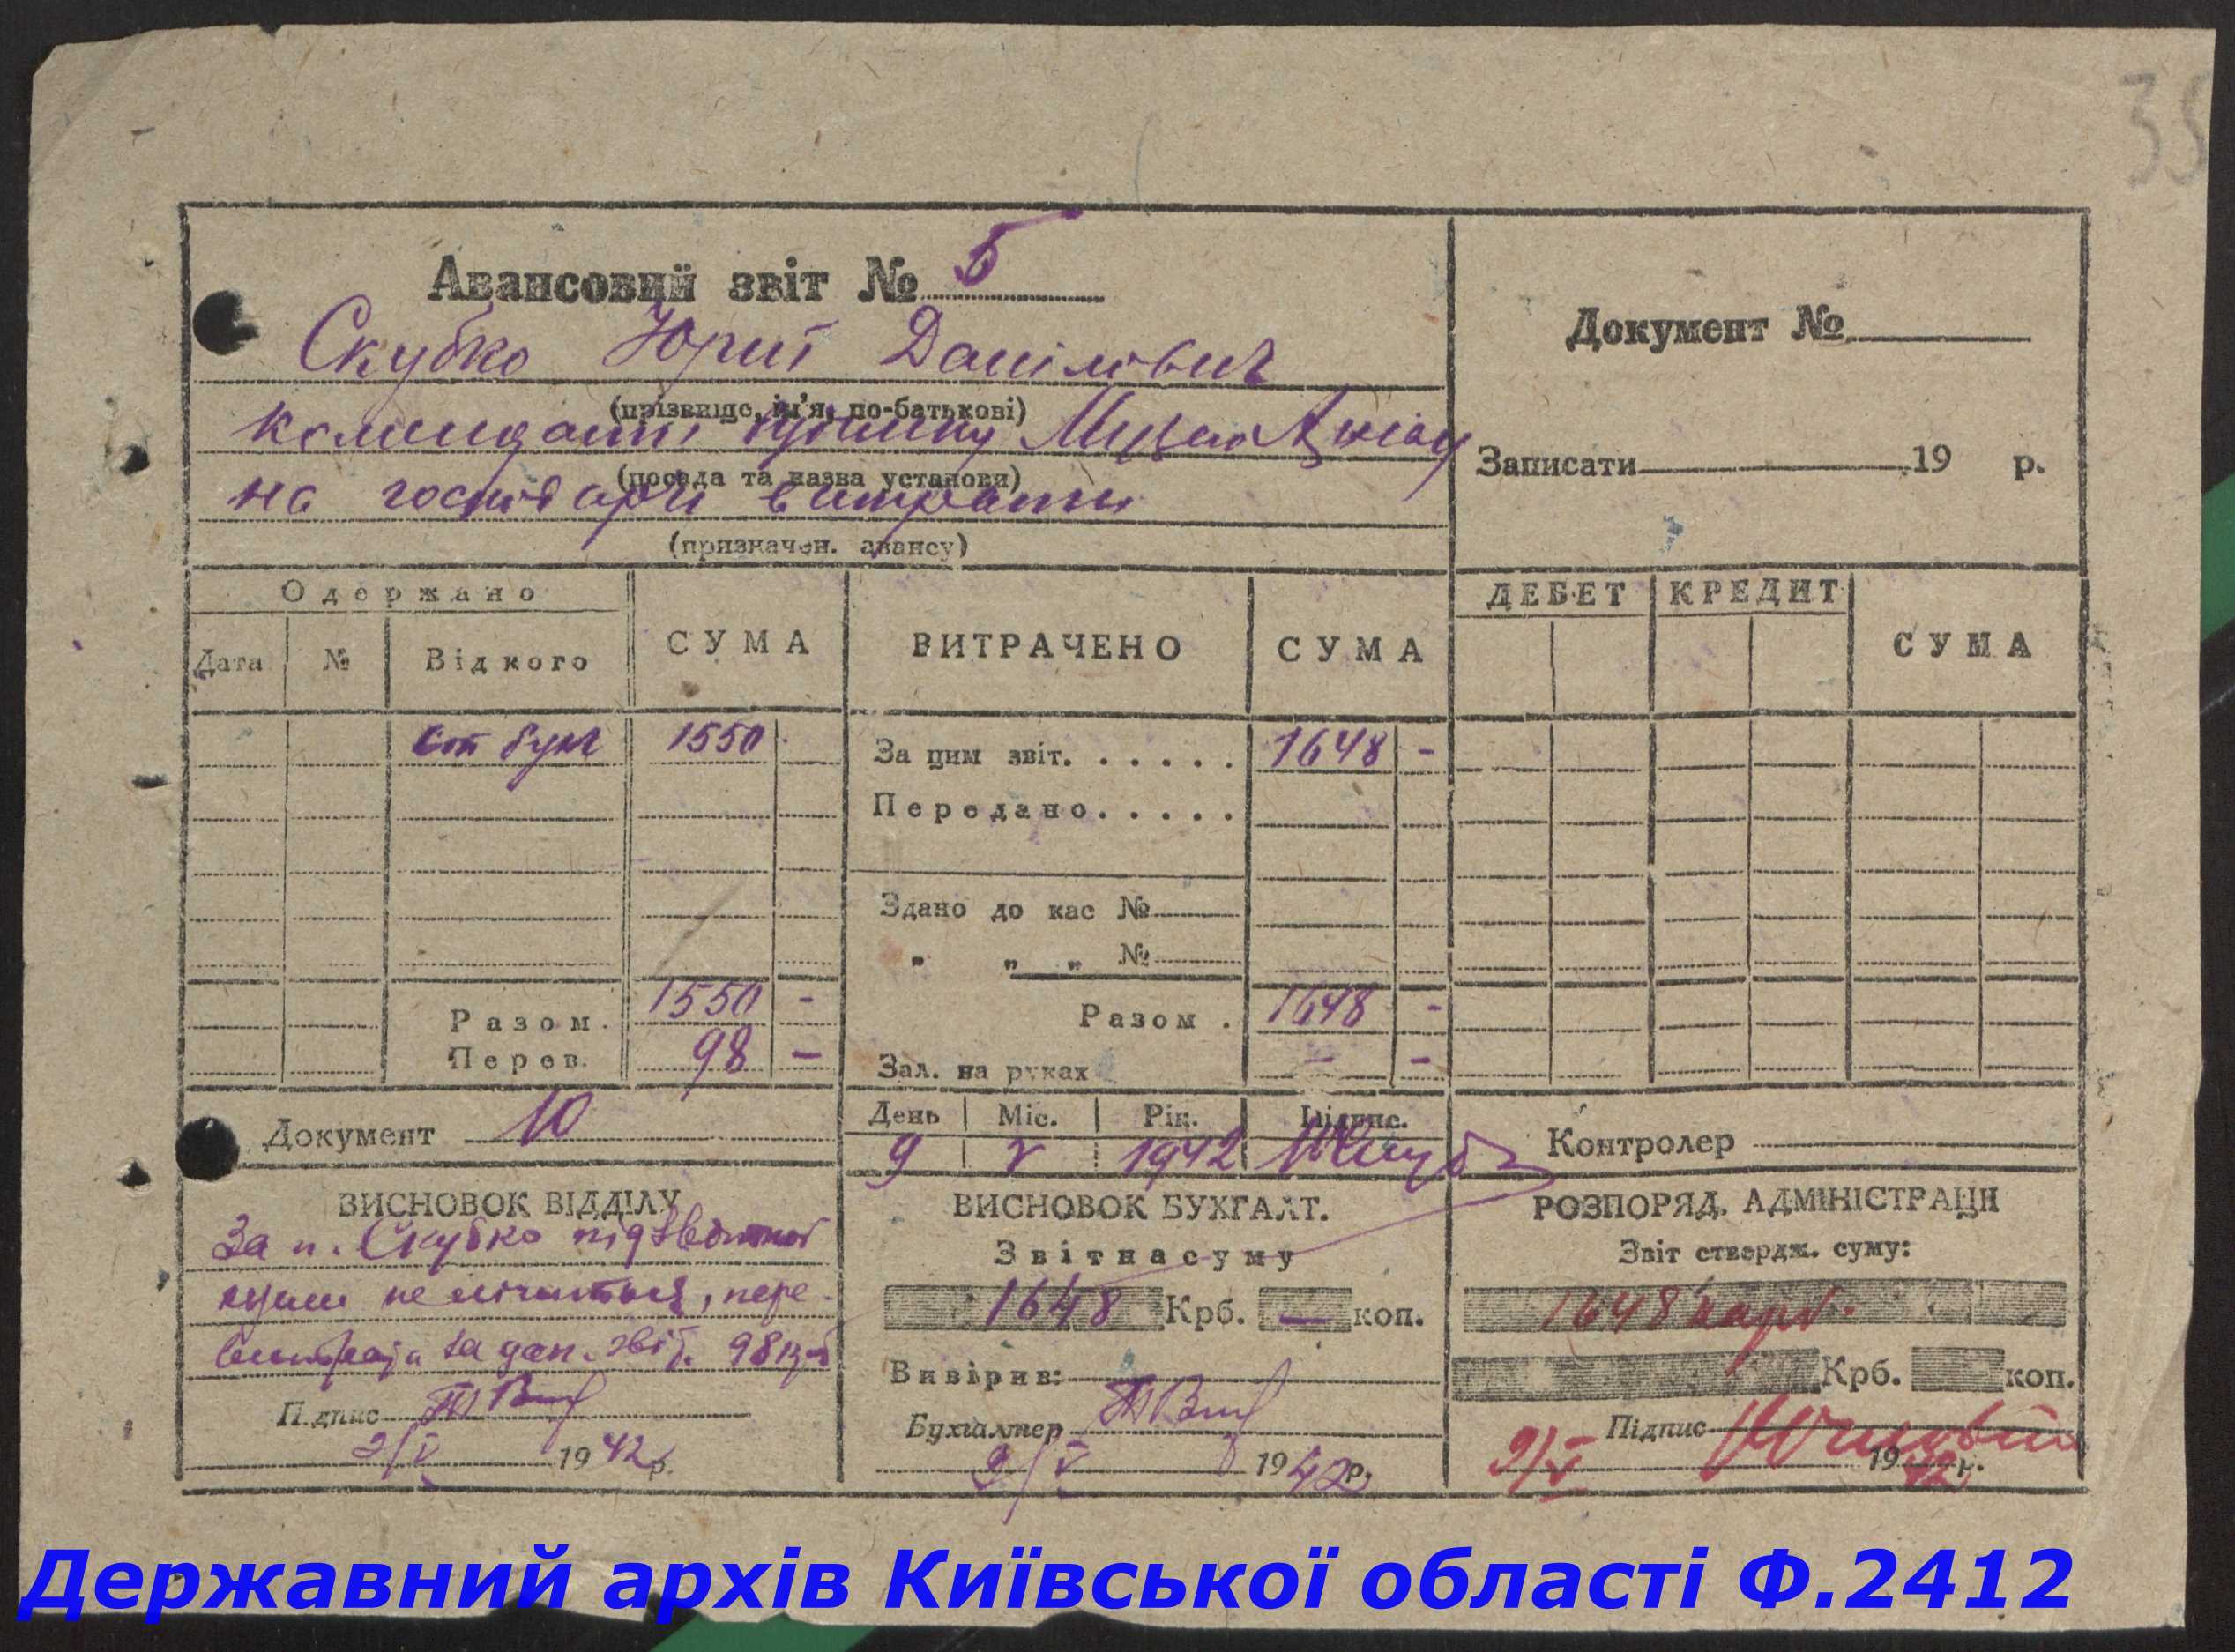 35
Авансовий звіт № 5
Скубко Юрій Данілович
(прізвище, ім’я, по-батькові)
комендант будинку Музею
(посада та назва установи)
на господарчі витрати
(призначен. авансу)
Документ №
Записати 19 р.
Одержано
Дата № Від кого СУМА ВИТРАЧЕНО СУМА
ДЕБЕТ КРЕДИТ СУМА
1550 За цим звіт. 1648 -
Передано
Здано до кас №
„ „ „ №
Разом. 1550 - Разом . 1648 -
Перев. 98 - Зал. на руках - -
Документ 10
День Міс. Рік. Підпис.
9 V 1942
Контролер
ВИСНОВОК ВІДДІЛУ
За п. Скубко підзвітної
суми не лічиться, пере-
витрата за дан. звіт. 98
Підпис
9/V 1942 р.
ВИСНОВОК БУХГАЛТ.
Звіт на суму
1648 Крб. — коп.
Вивірив:
Бухгалтер
9/V 1942 р.
РОЗПОРЯД. АДМІНІСТРАЦІЇ
Звіт ствердж. суму:
1648 карб.
Крб. коп.
Підпис
9/V 1942 р.
Державний архів Київської області Ф.2412